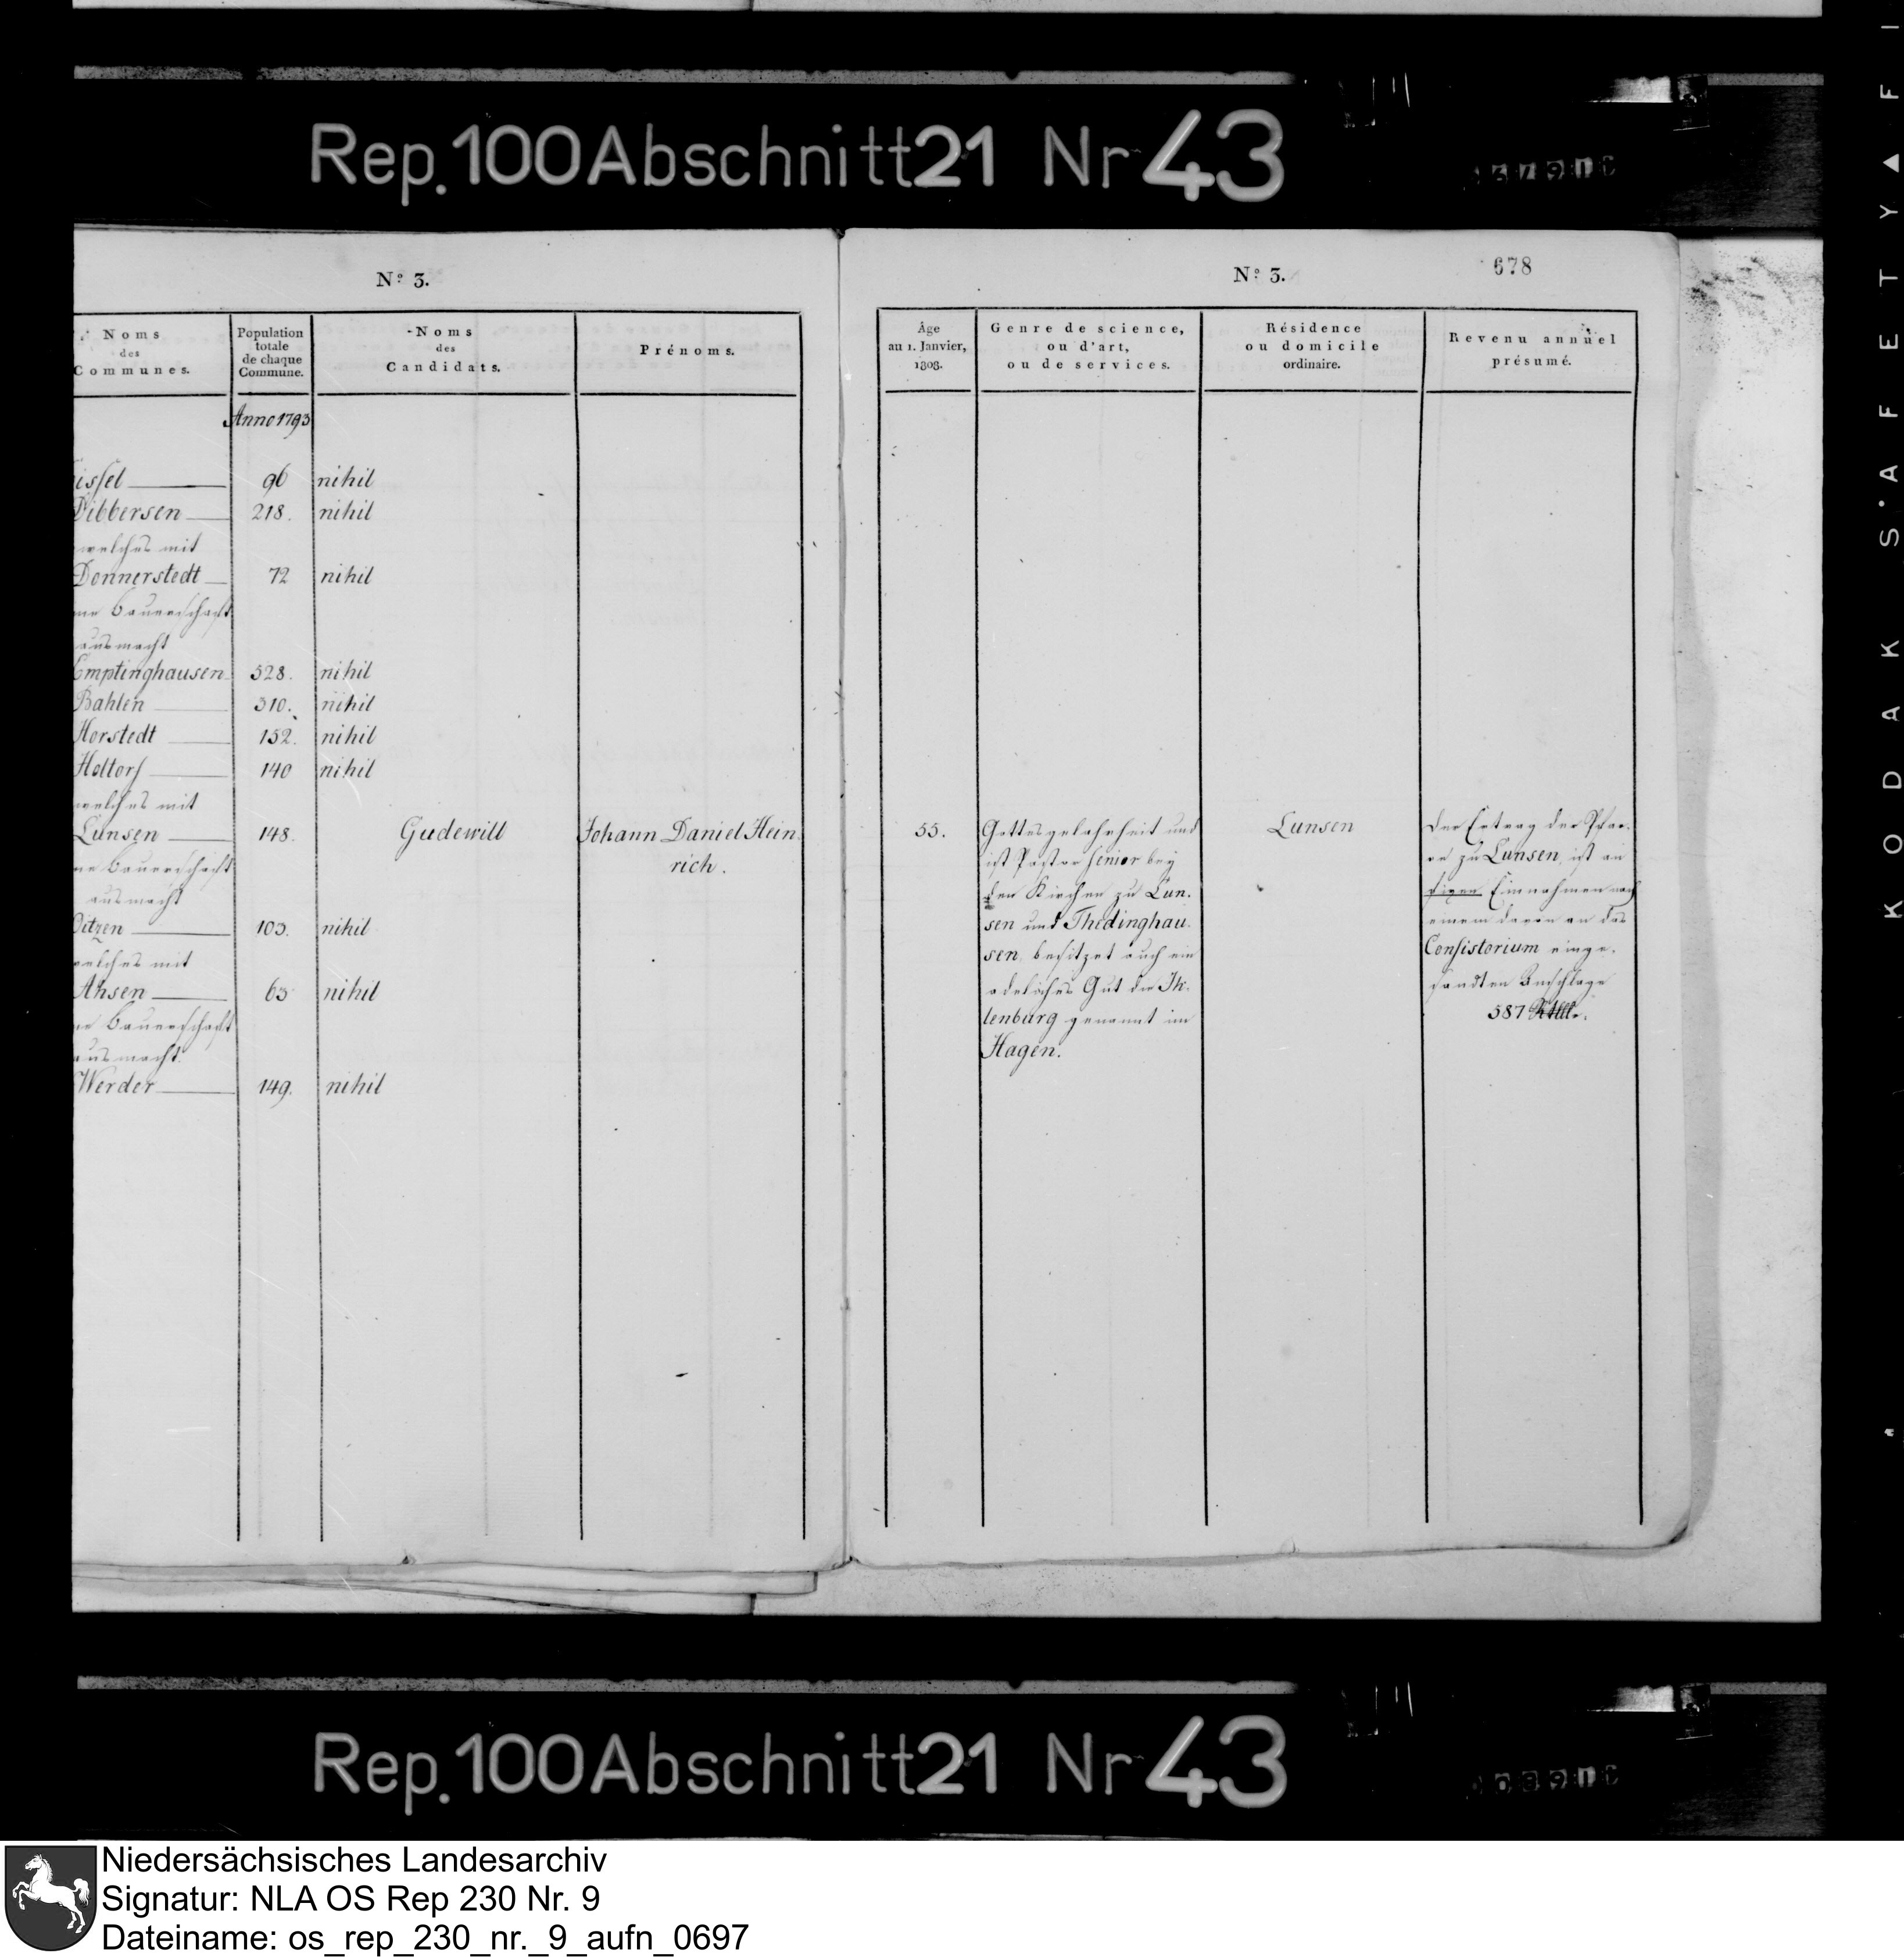 Rep. 100 Abschnitt 21 Nr 43
Nº 3.
Noms
des
Communes.
Population
totale
de chaque
Commune.
Noms
des
Candidats.
Prénoms.
Anno 1793
issel 96 nihil
Dibbersen 218. nihil
welches mit
Donnerstedt 72 nihil
ne Bauerschaft
ausmacht
Emptinghausen 528. nihil
Bahlen 310. nihil
Horstedt 152. nihil
Holtorf 140 nihil
welches mit
Lunsen 148. Gudewill Johann Daniel Hein
rich.
ne Bauerschaft
ausmacht
Ditzen 103. nihil
welches mit
Ahsen 63 nihil
ne Bauerschaft
ausmacht.
Werder 149. nihil
Nº 3.
678
Âge
au 1. Janvier,
1808.
Genre de science,
ou d'art,
ou de services.
Résidence
ou domicile
ordinaire.
Revenu annuel
présumé.
55.
Gottesgelahrheit und
ist Pastor senior bey
den Kirchen zu Lun.
sen und Thedinghau.
sen, besitzet auch ein
adeliches Gut die
lenburg genannt im
Hagen.
Lunsen
Der Ertrag der Pfar.
re zu Lunsen, ist an
fixen Einnahmen nach
einem davon an das
Consistorium einge.
sandten Anschlage
587
Rep. 100 Abschnitt 21 Nr 43
KODAK SAFETY FI
Niedersächsisches Landesarchiv
Signatur: NLA OS Rep 230 Nr. 9
Dateiname: os_rep_230_nr._9_aufn_0697